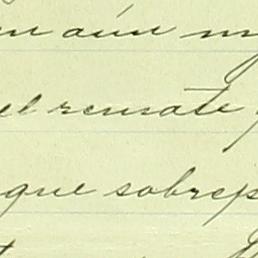 aún
el remate
que sobrep